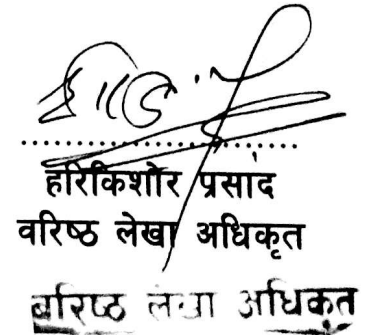 हरिकिशोर प्रसाद
वरिष्ठ लेखा अधिकृत
वरिष्ठ लेखा अधिकृत